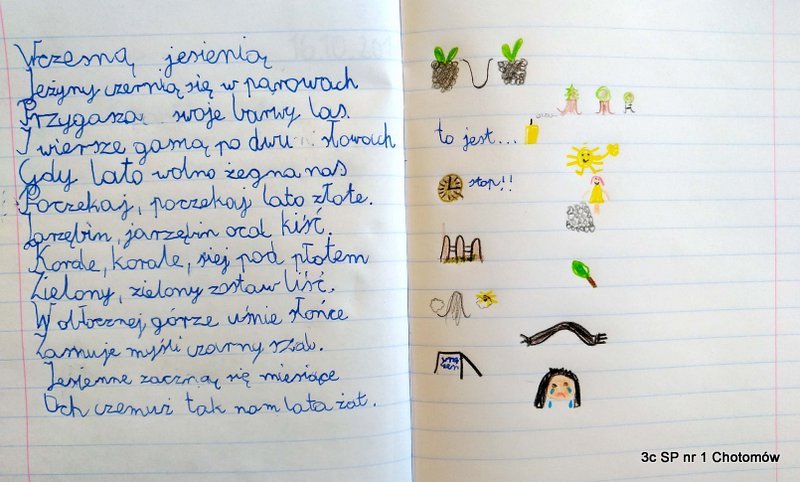 Wczesną jesienią
Jeżyny czernią się w parowach
Przygasza swoje barwy las.
I wiersze gasną po dwu słowach
Gdy lato wolno żegna nas
Poczekaj, poczekaj lato złote.
Jarzębin, jarzębin ocal kiść.
Korale, korale, siej pod płotem
Zielony, zielony zostaw liść.
W obłocznej górze uśnie słońce
Zasnuje myśli czarny szal.
Jesienne zaczną się miesiące
Och czemuż tak nam lata żal.
to jest...
stop!!
3c SP nr 1 Chotomów